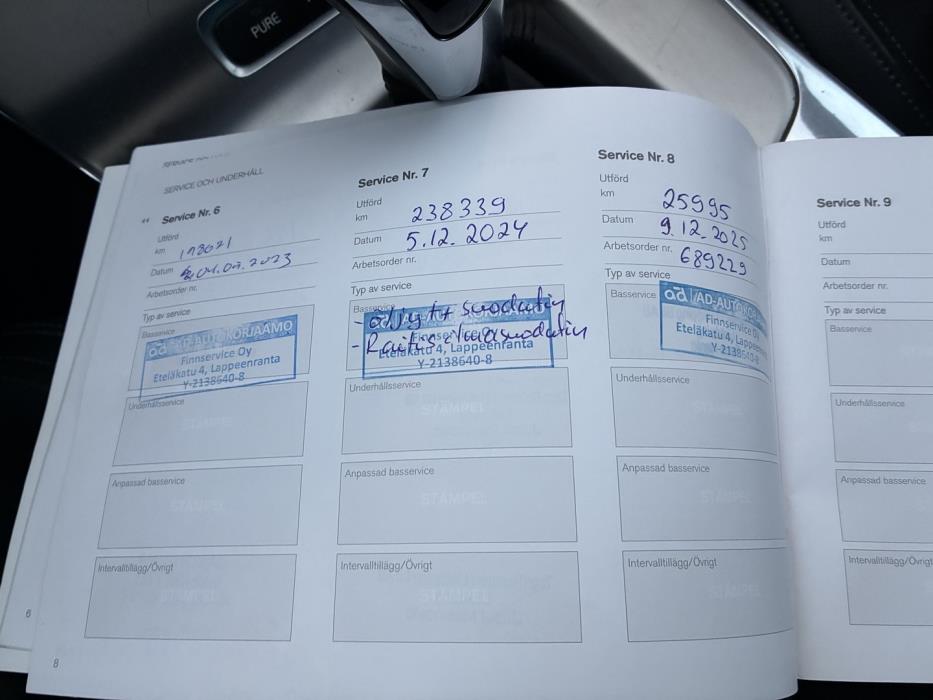 PURE
SERVICE OCH UNDERHÅLL
Service Nr. 6
Utförd
km 198021
Datum 04.07.2023
Arbetsorder nr.
Typ av service
Basservice
ad AD-AUTOKORJAAMO
Finnservice Oy
Eteläkatu 4, Lappeenranta
Y-2138640-8
Underhållsservice
STÄMPEL
Anpassad basservice
STÄMPEL
Intervalltillägg/Övrigt
STÄMPEL
Service Nr. 7
Utförd
km 238339
Datum 5.12.2024
Arbetsorder nr.
Typ av service
Basservice
- öljy + suodatin
- Raitisilmasuodatin
Finnservice Oy
Eteläkatu 4, Lappeenranta
Y-2138640-8
Underhållsservice
STÄMPEL
Anpassad basservice
STÄMPEL
Intervalltillägg/Övrigt
STÄMPEL
Service Nr. 8
Utförd
km 25995
Datum 9.12.2025
Arbetsorder nr. 689229
Typ av service
Basservice
ad /AD-AUTOKO
Finnservice Oy
Eteläkatu 4, Lappee
Y-2138640-8
Underhållsservice
STÄMPEL
Anpassad basservice
STÄMPEL
Intervalltillägg/Övrigt
STÄMPEL
Service Nr. 9
Utförd
km
Datum
Arbetsorder nr.
Typ av service
Basservice
Underhållsservice
Anpassad basservice
Intervalltillägg/Övrigt
6
8